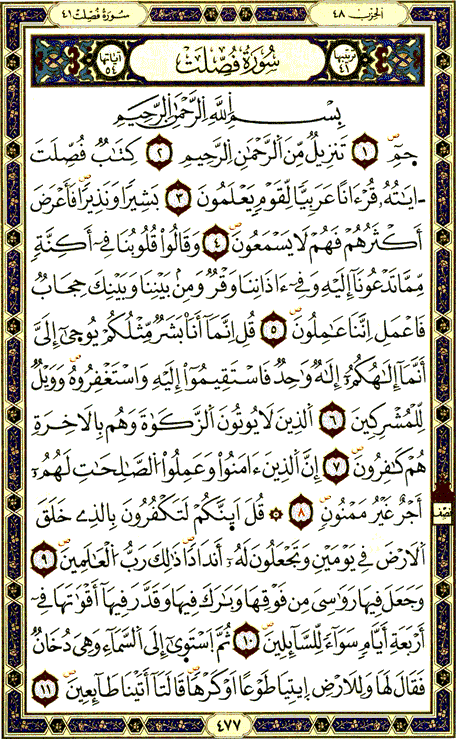 الحزب ٤٨
سورة فصلت ٤١
ترتيبها ٤١
سُورَةُ فُصِّلَتْ
آياتها ٥٤
بِسْمِ اِللَّهِ اِلرَّحْمَٰنِ اِلرَّحِيمِ
حمٓ ١ تَنزِيلٌ مِّنَ اَلرَّحْمَٰنِ اِلرَّحِيمِ ٢ كِتَٰبٌ فُصِّلَتَ
ءَايَٰتُهُۥ قُرْءَانًا عَرَبِيًّا لِّقَوْمٍ يَعْلَمُونَ ٣ بَشِيرًا وَنَذِيرًا فَأَعْرَضَ
أَكْثَرُهُمْ فَهُمْ لَا يَسْمَعُونَ ٤ وَقَالُوا قُلُوبُنَا فِےٓ أَكِنَّةٍ
مِّمَّا تَدْعُونَآ إِلَيْهِ وَفِےٓ ءَاذَانِنَا وَقْرٌ وَمِنۢ بَيْنِنَا وَبَيْنِكَ حِجَابٌ
فَاعْمَلِ اِنَّنَا عَٰمِلُونَ ٥ قُلِ اِنَّمَآ أَنَا بَشَرٌ مِّثْلُكُمْ يُوحَىٰٓ إِلَىَّ
أَنَّمَآ إِلَٰهُكُمُۥٓ إِلَٰهٌ وَٰحِدٌ فَاسْتَقِيمُوٓا إِلَيْهِ وَاسْتَغْفِرُوهُ وَوَيْلٌ
لِّلْمُشْرِكِينَ ٦ اَلذِينَ لَا يُوتُونَ اَلزَّكَوٰةَ وَهُم بِالَاخِرَةِ
هُمْ كَٰفِرُونَ ٧ إِنَّ اَلذِينَ ءَامَنُوا وَعَمِلُوا اُلصَّٰلِحَٰتِ لَهُمُۥٓ
أَجْرٌ غَيْرُ مَمْنُونٍ ٨ ۞ قُلَ اَينَّكُمْ لَتَكْفُرُونَ بِالذِے خَلَقَ
اَلَارْضَ فِے يَوْمَيْنِ وَتَجْعَلُونَ لَهُۥٓ أَندَادًا ذَٰلِكَ رَبُّ اُلْعَٰلَمِينَ ٩
وَجَعَلَ فِيهَا رَوَٰسِىَ مِن فَوْقِهَا وَبَٰرَكَ فِيهَا وَقَدَّرَ فِيهَآ أَقْوَٰتَهَا فِےٓ
أَرْبَعَةِ أَيَّامٍ سَوَآءً لِّلسَّآئِلِينَ ١٠ ثُمَّ اَسْتَوَىٰٓ إِلَى اَلسَّمَآءِ وَهْىَ دُخَانٌ
فَقَالَ لَهَا وَلِلَارْضِ اِيتِيَا طَوْعًا اَوْ كَرْهًا قَالَتَآ أَتَيْنَا طَآئِعِينَ ١١
٤٧٧